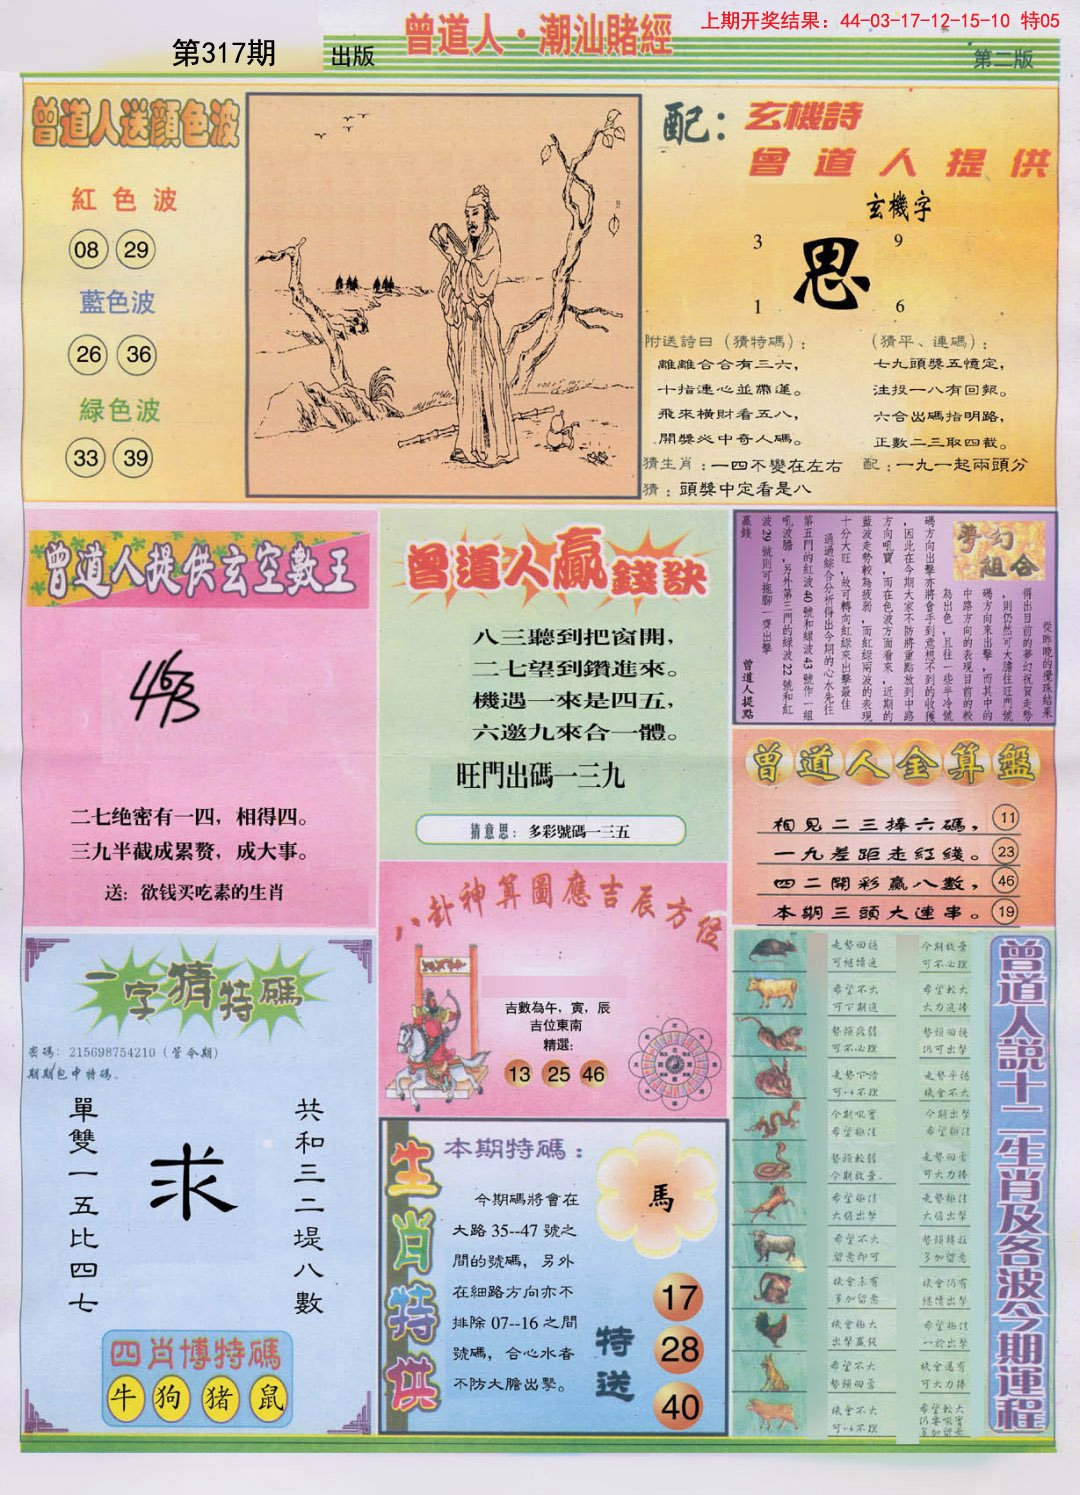 上期开奖结果：44-03-17-12-15-10 特05
第317期
出版
曾道人·潮汕賭經
第二版
曾道人送顏色波
紅色波
08 29
藍色波
26 36
緑色波
33 39
配：玄機詩
曾道人提供
玄機字
3 9
思
1 6
附送詩曰（猜特碼）：
離離合合有三六，
十指連心並蒂蓮。
飛來橫財看五八，
開獎必中奇人碼。
（猜平、連碼）：
七九頭獎五憶定，
注投一八有回報。
六合出碼指明路，
正數二三取四截。
猜生肖：一四不變在左右
配：一九一起兩頭分
猜：頭獎中定看是八
曾道人提供玄空數王
463
二七绝密有一四，相得四。
三九半截成累赘，成大事。
送：欲钱买吃素的生肖
曾道人贏錢訣
八三聽到把窗開，
二七望到鑽進來。
機遇一來是四五，
六邀九來合一體。
旺門出碼一三九
猜意思：多彩號碼一三五
夢幻組合
從昨晚的攪珠結果
得出目前的夢幻祝賀走勢
，則仍然可大膽往旺門號
碼方向來出擊，而其中的
中路方向的表現目前的較
為出色，且往一些半冷號
碼方向出擊亦將會手到意想不到的收獲
，因此在今期大家不防將重點放到中路
方向吼寶，而在色波方面看來，近期的
藍波走勢較為疲弱，而紅綠兩波的表現
十分大旺，故可轉向紅綠來出擊最佳
通過綜合分析得出今期的心水先往
第五門的紅波40號和綠波43號作一組
吼波膽，另外第三門的綠波22號和紅
波29號則可拖腳一齊出擊
贏錢
曾道人提點
曾道人金算盤
相見二三捧六碼，11
一九差距走紅綫。23
四二開彩贏八數，46
本期三頭大連串。19
八卦神算圖應吉辰方位
吉數為午，寅，辰
吉位東南
精選：
13 25 46
一字猜特碼
密碼：215698754210（管今期）
期期包中特碼。
單雙一五比四七
求
共和三二堤八數
四肖博特碼
牛 狗 猪 鼠
生肖特供
本期特碼：
今期碼將會在
大路35--47號之
間的號碼，另外
在細路方向亦不
排除07--16之間
號碼，合心水者
不防大膽出擊。
馬
特送
17
28
40
曾道人説十二生肖及各波今期運程
走勢回穩
可繼續追
今期放棄
可不必理
希望不大
可下期追
希望較大
大力追捧
勢頭疲弱
可不必理
勢頭回穩
仍可出擊
走勢平穩
機會不大
今期吼寶
希望極佳
今期出擊
希望極佳
勢頭較弱
今期放棄
走勢回勇
可大力捧
希望極佳
大膽出擊
走勢極佳
大膽出擊
希望不大
留意即可
多加留意
機會未有
多加留意
機會仍有
繼續出擊
機會極大
出擊贏錢
希望極佳
一於出擊
希望不大
勢頭回勇
機會還有
可大力捧
機會不大
希望較大
仍要吼寶
多加留意